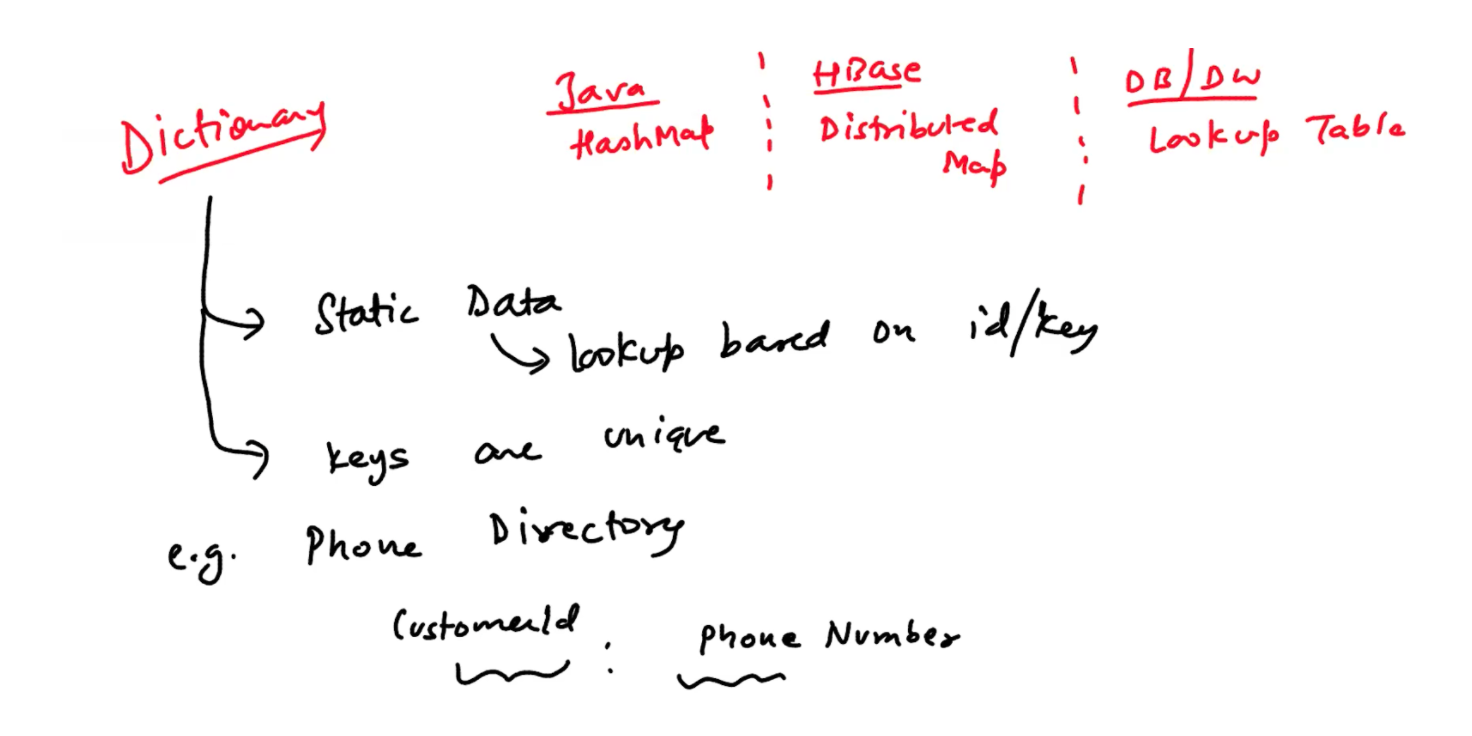 Dictionary
Java
HashMap
HBase
Distributed
Map
DB/DW
Lookup Table
Static Data
lookup based on id/key
keys are unique
e.g. Phone Directory
CustomerId : Phone Number